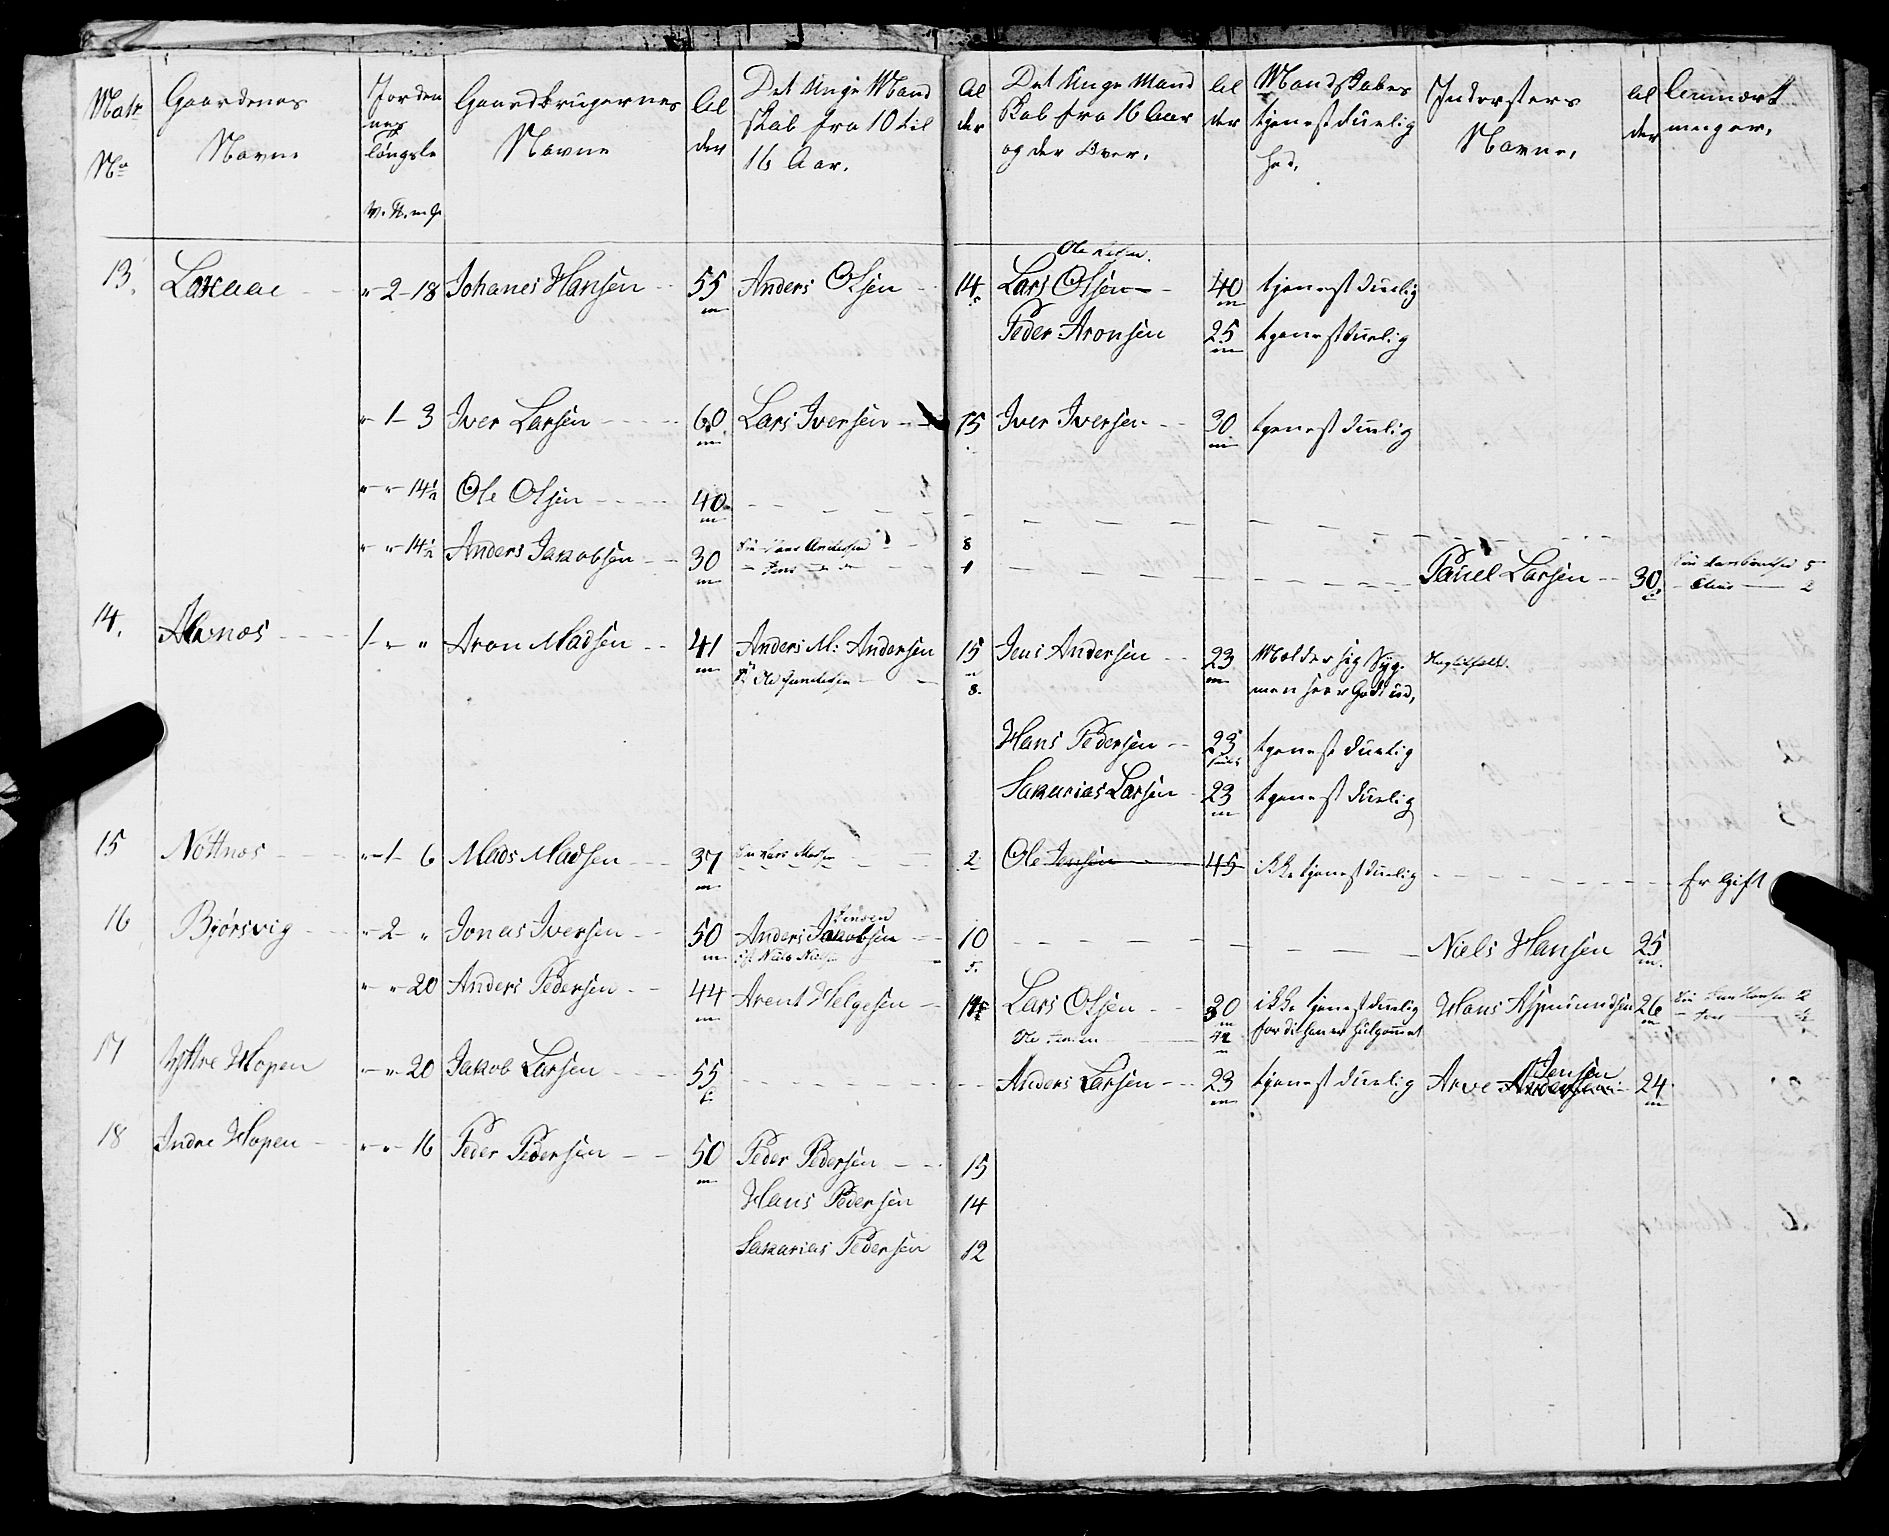 Matr No | Gaardenes Navne | Jordenes Længsle V. P. m L. | Gaardbrugernes Navne | Al der | Det Unge Mand skab fra 10 til 16 Aar. | Al der | Det Unge Mand skab fra 16 Aar og der Over. | Al der | Mandskabes tjenestduelig hed. | Indersters Navne, | Al der | Anmærk ninger,
Ole
13. Laxaae " 2 - 18 Johanes Hansen 55 m Anders Olsen 14. Lars Olsen 40 m tjenestduelig
Peder Aronsen 25 m tjenestduelig
" 1 - 3 Iver Larsen 60 m Lars Iversen 15 Iver Iversen 30 m tjenestduelig
" " 14½ Ole Olsen 40 m
" " 14½ Anders Jakobsen 30 m Andersen 8
Jens 1 Pauel Larsen 30
5
2
14. Alvnes 1 - " Aron Madsen 41 m Anders M: Andersen 15 Jens Andersen 23 m Melder sig Syg.
Ole 8. men seer Godt ud,
Hans Pedersen 23 tjenestduelig
Sakarias Larsen 23 m tjenestduelig
15 Nöttnes " 1 - 6 Mads Madsen 37 m Lars Madsen 2 Ole Jensen 45 ikke tjenestduelig Er Gift
Jensen
16 Bjørsvig " 2 - " Jonas Iversen 50 m Anders Jakobsen 10 Niels Hansen 25 m.
Niels 5.
" " 20 Anders Pedersen 44 m Arent Helgesen 14 Lars Olsen 30 m ikke tjenestduelig Hans Aspmundsen 26 m Hansen 2
Ole Jensen 42 m for di han er
Jensen
17 Yttre Hopen " " 20 Jakob Larsen 55 Anders Larsen 23 m tjenestduelig Arve Andersen 24 m
18 Indre Hopen " " 16 Peder Pedersen 50 m Peder Pedersen 15
Hans Pedersen 14
Sakarias Pedersen 12